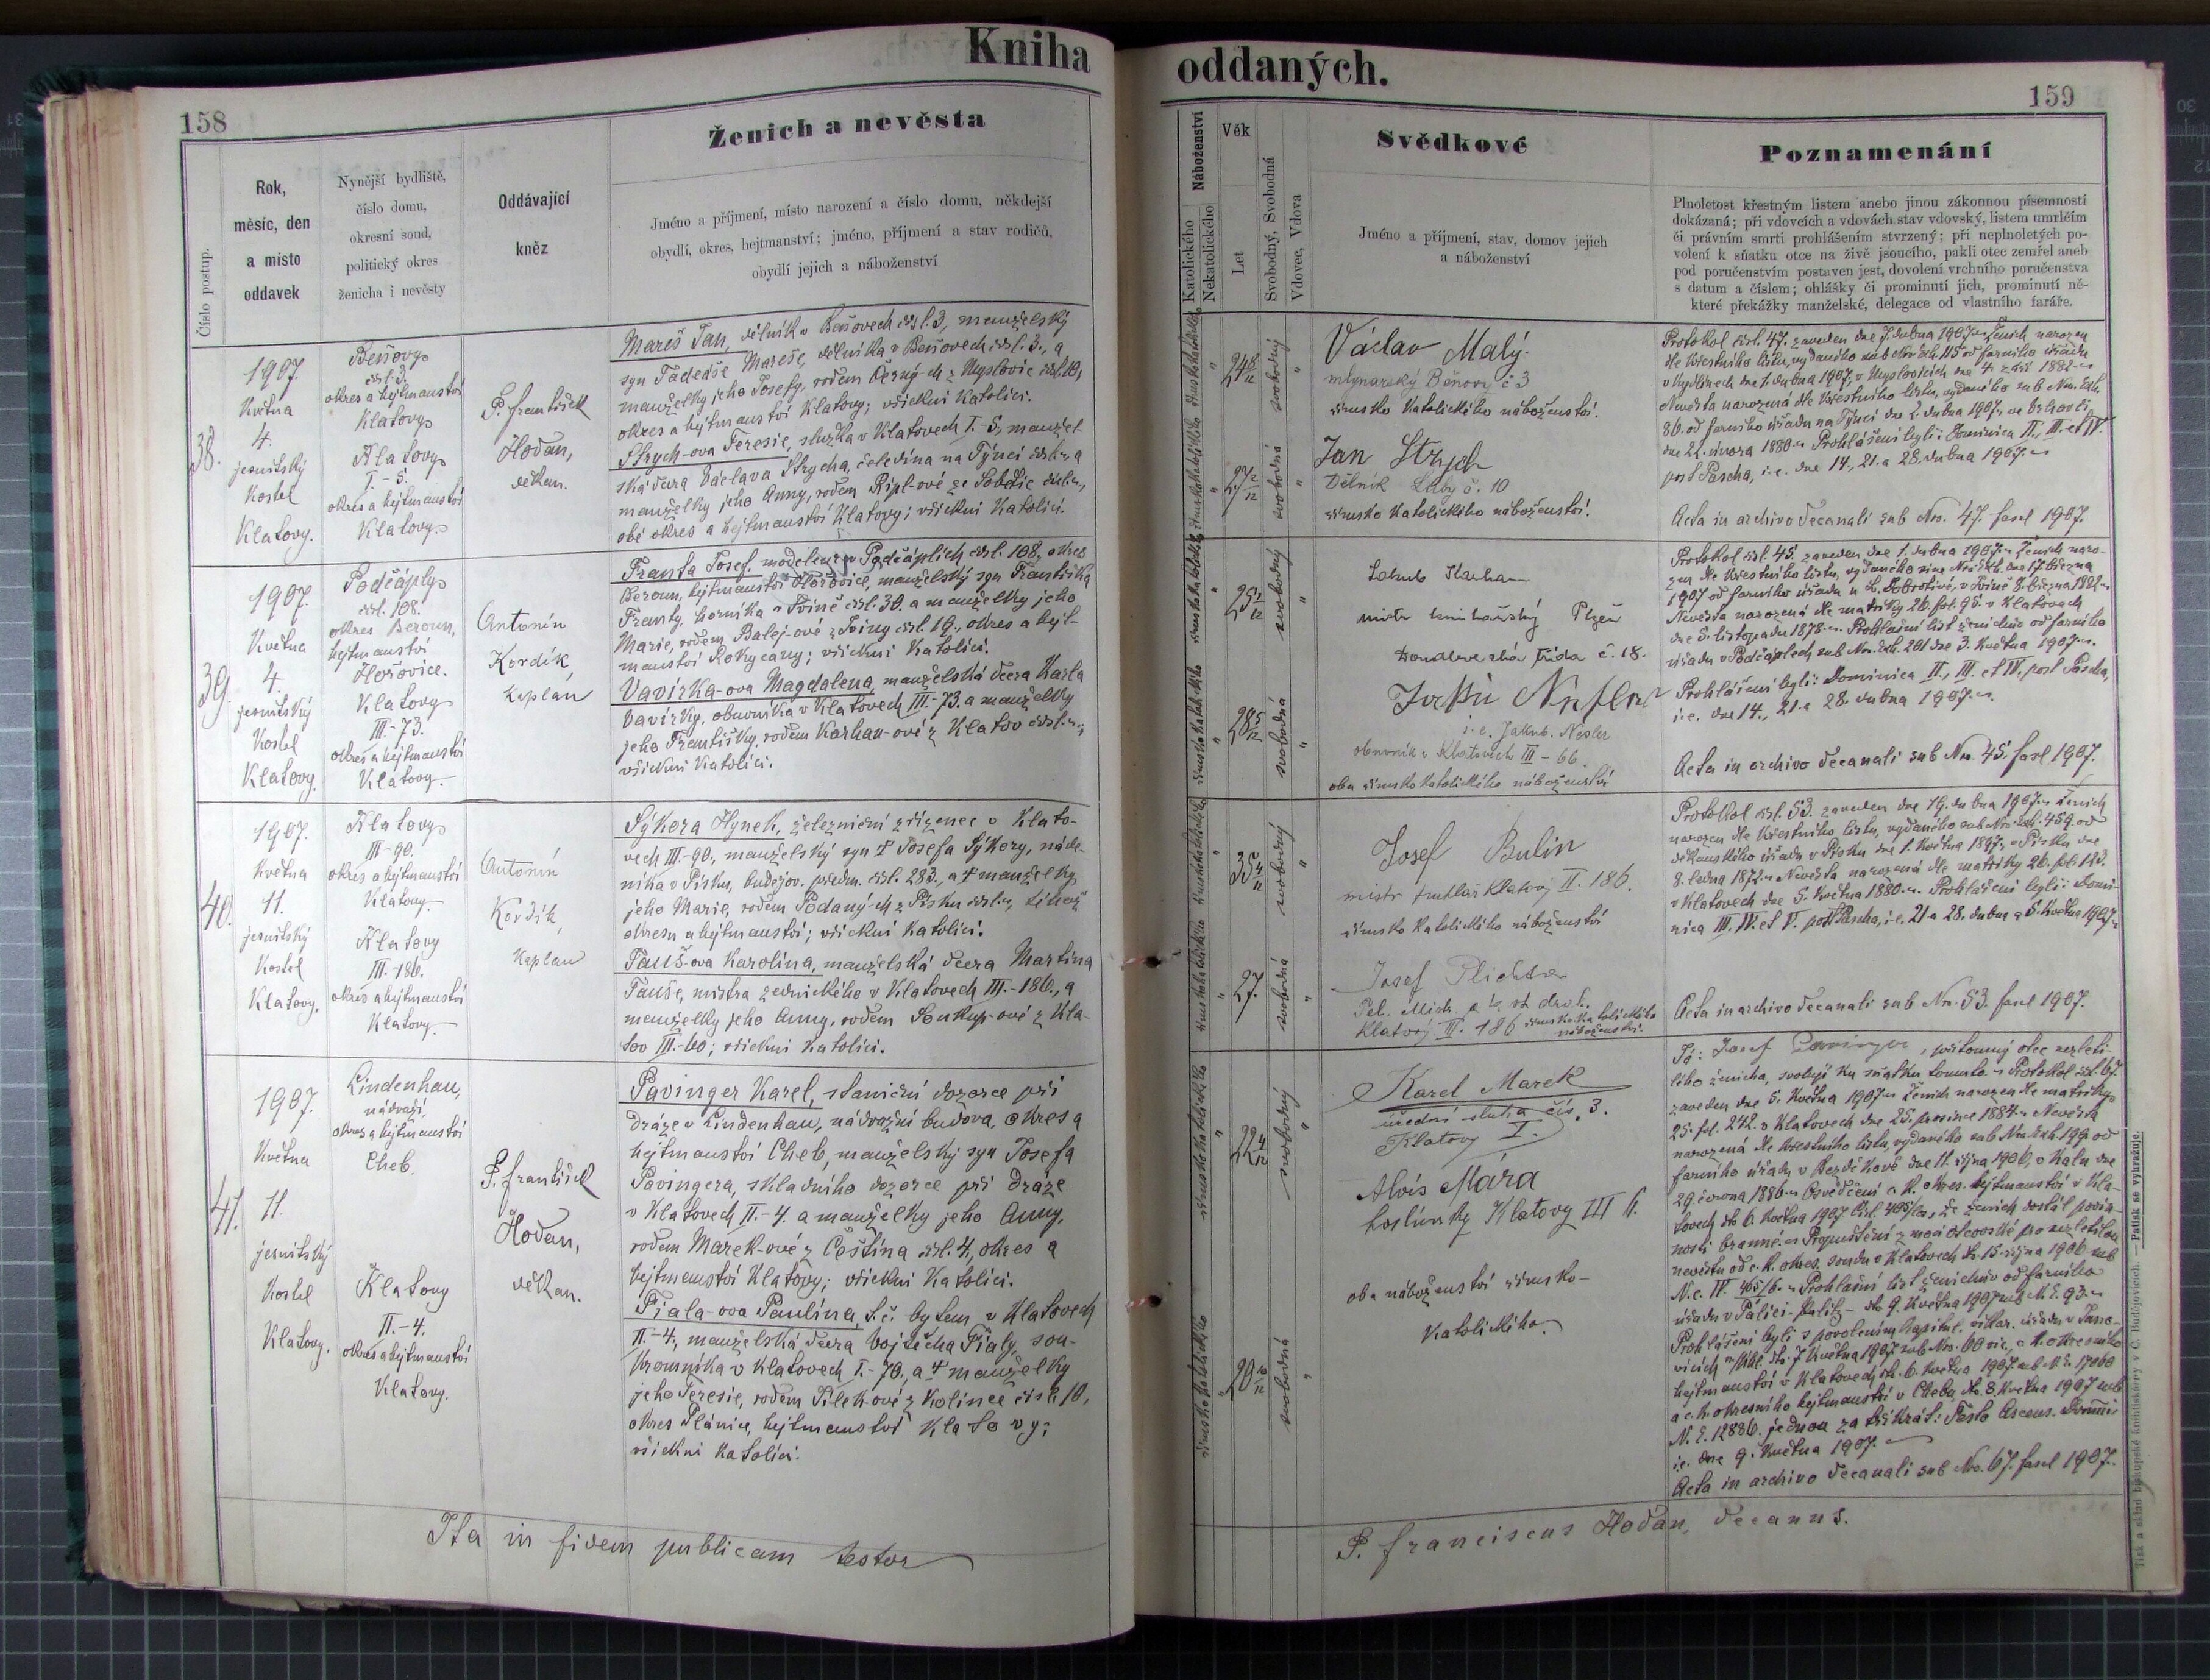 Kniha
158
Ženich a nevěsta
Číslo postup.
Rok,
měsíc, den
a místo
oddavek
Nynější bydliště,
číslo domu,
okresní soud,
politický okres
ženicha i nevěsty
Oddávající
kněz
Jméno a příjmení, místo narození a číslo domu, někdejší
obydlí, okres, hejtmanství; jméno, příjmení a stav rodičů,
obydlí jejich a náboženství
38.
1907.
Května
4.
jesuitský
kostel
Klatovy.
Beňovy
čísl. 3.
okres a hejtmanství
Klatovy
Klatovy
I.-5.
okres a hejtmanství
Klatovy.
P. František
Hoďan,
děkan.
Mareš Jan, dělník v Beňovech čísl. 3, manželský
syn Tadeáše Mareše, dělníka v Beňovech čísl. 3., a
manželky jeho Josefy, rodem Černých z Myslovic čísl. 18,
okres a hejtmanství Klatovy; všickni Katolíci.
Strych-ova Teresie, služka v Klatovech I.-5, manžel
ská dcera Václava Strycha, čeledína na Týnci a
manželky jeho Anny, rodem Ripl-ové ze
obé okres a hejtmanství Klatovy; všickni Katolíci.
39.
1907.
Května
4.
jesuitský
Kostel
Klatovy.
Podčáply
čísl. 108.
okres Beroun,
hejtmanství
Hořovice.
Klatovy
III.-73.
okres a hejtmanství
Klatovy.
Antonín
Kordík
kaplán
Franta Josef, modeleur v Podčáplích čísl. 108, okres
Beroun, hejtmanství Hořovice, manželský syn Františka
Franty, horníka v čísl. 39. a manželky jeho
Marie, rodem Balej-ové z čísl. 19., okres a hejt-
manství Rokycany; všickni Katolíci.
Vavírka-ova Magdalena manželská dcera Karla
Vavírky, obuvníka v Klatovech III.-73. a manželky
jeho Františky, rodem Karhan-ové z Klatov
všickni Katolíci.
40.
1907.
Května
11.
jesuitský
Kostel
Klatovy.
Klatovy
III.-90.
okres a hejtmanství
Klatovy.
Klatovy
III.-186.
okres a hejtmanství
Klatovy.
Antonín
Kordík,
Kaplan
Sýkora Hynek, železniční zřízenec v Klato-
vech III.-90., manželský syn † Josefa Sýkory, náde-
níka v Písku, budějov. předm. čísl. 283., a † manželky
jeho Marie, rodem Podaných z Písku téhož
okresu a hejtmanství; všickni Katolíci.
Tauš-ova Karolína, manželská dcera Martina
Tauše, mistra zednického v Klatovech III.-186., a
manželky jeho Anny, rodem Soukup-ové z Kla-
tov III.-60; všickni Katolíci.
41.
1907.
Května
11.
jesuitský
kostel
Klatovy.
Lindenhau,
nádraží,
okres a hejtmanství
Cheb.
Klatovy
II.-4.
okres a hejtmanství
Klatovy.
P. František
Hoďan,
děkan.
Pavinger Karel, staniční dozorce při
dráze v Lindenhau, nádražní budova, okres a
hejtmanství Cheb, manželský syn Josefa
Pavingera, skladního dozorce při dráze
v Klatovech II.-4. a manželky jeho Anny,
rodem Marek-ové z Čeština čísl. 4, okres a
hejtmanství Klatovy; všickni Katolíci.
Fiala-ova Paulína, t.č. bytem v Klatovech
II.-4., manželská dcera Vojtěcha Fialy, sou-
kromníka v Klatovech I.-70., a † manželky
jeho Terezie, rodem Jílek-ové z Kolince čísl. 10,
okres Plánice, hejtmanství Klatovy;
všickni katolíci.
Ita in fidem publicam testor
oddaných.
159
Náboženství
Katolického
Nekatolického
Věk
Let
Svobodný, Svobodná
Vdovec, Vdova
Svědkové
Jméno a příjmení, stav, domov jejich
a náboženství
Poznamenání
Plnoletost křestným listem anebo jinou zákonnou písemností
dokázaná; při vdovcích a vdovách stav vdovský, listem umrlčím
či právním smrti prohlášením stvrzený; při neplnoletých po-
volení k sňatku otce na živě jsoucího, pakli otec zemřel aneb
pod poručenstvím postaven jest, dovolení vrchního poručenstva
s datum a číslem; ohlášky či prominutí jich, prominutí ně-
které překážky manželské, delegace od vlastního faráře.
24 8/12
svobodný
27 2/12
svobodná
Václav Malý.
mlynarský Běňovy č 3
římsko Katolického náboženství.
Jan Strych
Dělník Luby č. 10
římsko Katolického náboženství.
Protokol čísl. 47. zaveden dne 7. dubna 1907. Ženich narozen
dle křestního listu, vydaného sub Nro Exh. 115 od farního úřadu
v Kydlinech dne 1. dubna 1907, v Myslovicích dne 4. září 1882.
Nevěsta narozená dle křestního listu, vydaného sub Nro. Exh.
86. od farního úřadu na Týnci dne 2. dubna 1907, ve
dne 22. února 1880. Prohlášení byli: Dominica II., III. et IV.
post Pascha, i.e. dne 14., 21. a 28. dubna 1907.
Acta in archivo decanali sub Nro. 47. fasc 1907.
svobodný
28 5/12
svobodná
Jakub Karhan
mistr knihařský Plzeň
třída č. 18.
i.e. Jakub. Nesler
obuvník v Klatovech III - 66.
oba římsko katolického náboženství
Protokol čísl. 45. zaveden dne 1. dubna 1907. Ženich naro-
zen dle křestního listu, vydaného sine Nro Exh. dne 17. března
1907 od farního úřadu u sv. Dobrotivé, v 8. března 1882.
Nevěsta narozená dle matriky 26. fol. 95. v Klatovech
dne 5. listopadu 1878. Prohlašní list ženichův od farního
úřadu v Podčáplech sub Nro. Exh. 201 dne 3. Května 1907.
Prohlášeni byli: Dominica II., III. et IV. post Pascha,
i.e. dne 14., 21. a 28. dubna 1907.
Acta in archivo decanali sub Nro. 45. fasc 1907.
35 4/12
svobodný
27.
svobodná
Josef Bulin
mistr truhlář Klatovy II. 186.
římsko Katolického náboženství
Josef Plichta
Klatovy III. 186 římsko-katolického
náboženství.
Protokol čísl. 53. zaveden dne 19. dubna 1907. Ženich
narozen dle křestního listu, vydaného sub Nro Exh. 459. od
děkanského úřadu v Písku dne 1. Května 1897, v Písku dne
8. ledna 1872. Nevěsta narozená dle matriky 26. fol. 123.
v Klatovech dne 5. Května 1880. Prohlášeni byli: Domi-
nica III. IV. et V. post Pascha, i.e. 21. a 28. dubna a 5. Května 1907.
Acta in archivo decanali sub Nro. 53. fasc 1907.
22 4/12
svobodný
20 10/12
svobodná
Karel Marek
úřední sluha čís. 3.
Klatovy I.
Alois Mára
hostinský Klatovy III 6.
oba náboženství římsko-
Katolického.
Já: Josef Pavinger, přítomný otec nezleti-
lého ženicha, svoluji ku sňatku tomuto. Protokol čísl. 67.
zaveden dne 5. Května 1907. Ženich narozen dle matriky
25. fol. 242. v Klatovech dne 25. prosince 1884. Nevěsta
narozená dle křestního listu, vydaného sub Nro Exh. 199 od
farního úřadu v Bezděkově dne 11. října 1906, v Kalu dne
29. června 1886. Osvědčení c. k. okres. hejtmanství v Kla-
tovech dto 6. Května 1907 že ženich dostál povin-
nosti branné. Propuštění z moci otcovské pro nezletilou
nevěstu od c. k. okres. soudu v Klatovech dto. 15. října 1906 sub
Prohlašní list ženichův od farního
úřadu v Pálici-Palitz- dto 9. Května 1907 sub N. E. 93.
Prohlášeni byli s povolením úřadu v Jano-
vicích dto. 7 Května 1907 sub Nro. 60 c. k. okresního
hejtmanství v Klatovech dto. 6. Května 1907. sub N. E. 17060
a c. k. okresního hejtmanství v Chebu dto. 8. Května 1907 sub
N. E. 12886. jednou za třikrát: Festo Ascens. Domini
i.e. dne 9. Května 1907.
Acta in archivo decanali sub Nro. 67. fasc 1907.
P. Franciscus Hoďan, decanus.
Tisk a sklad biskupské knihtiskárny v Č. Budějovicích. — Patisk se vyhražuje.